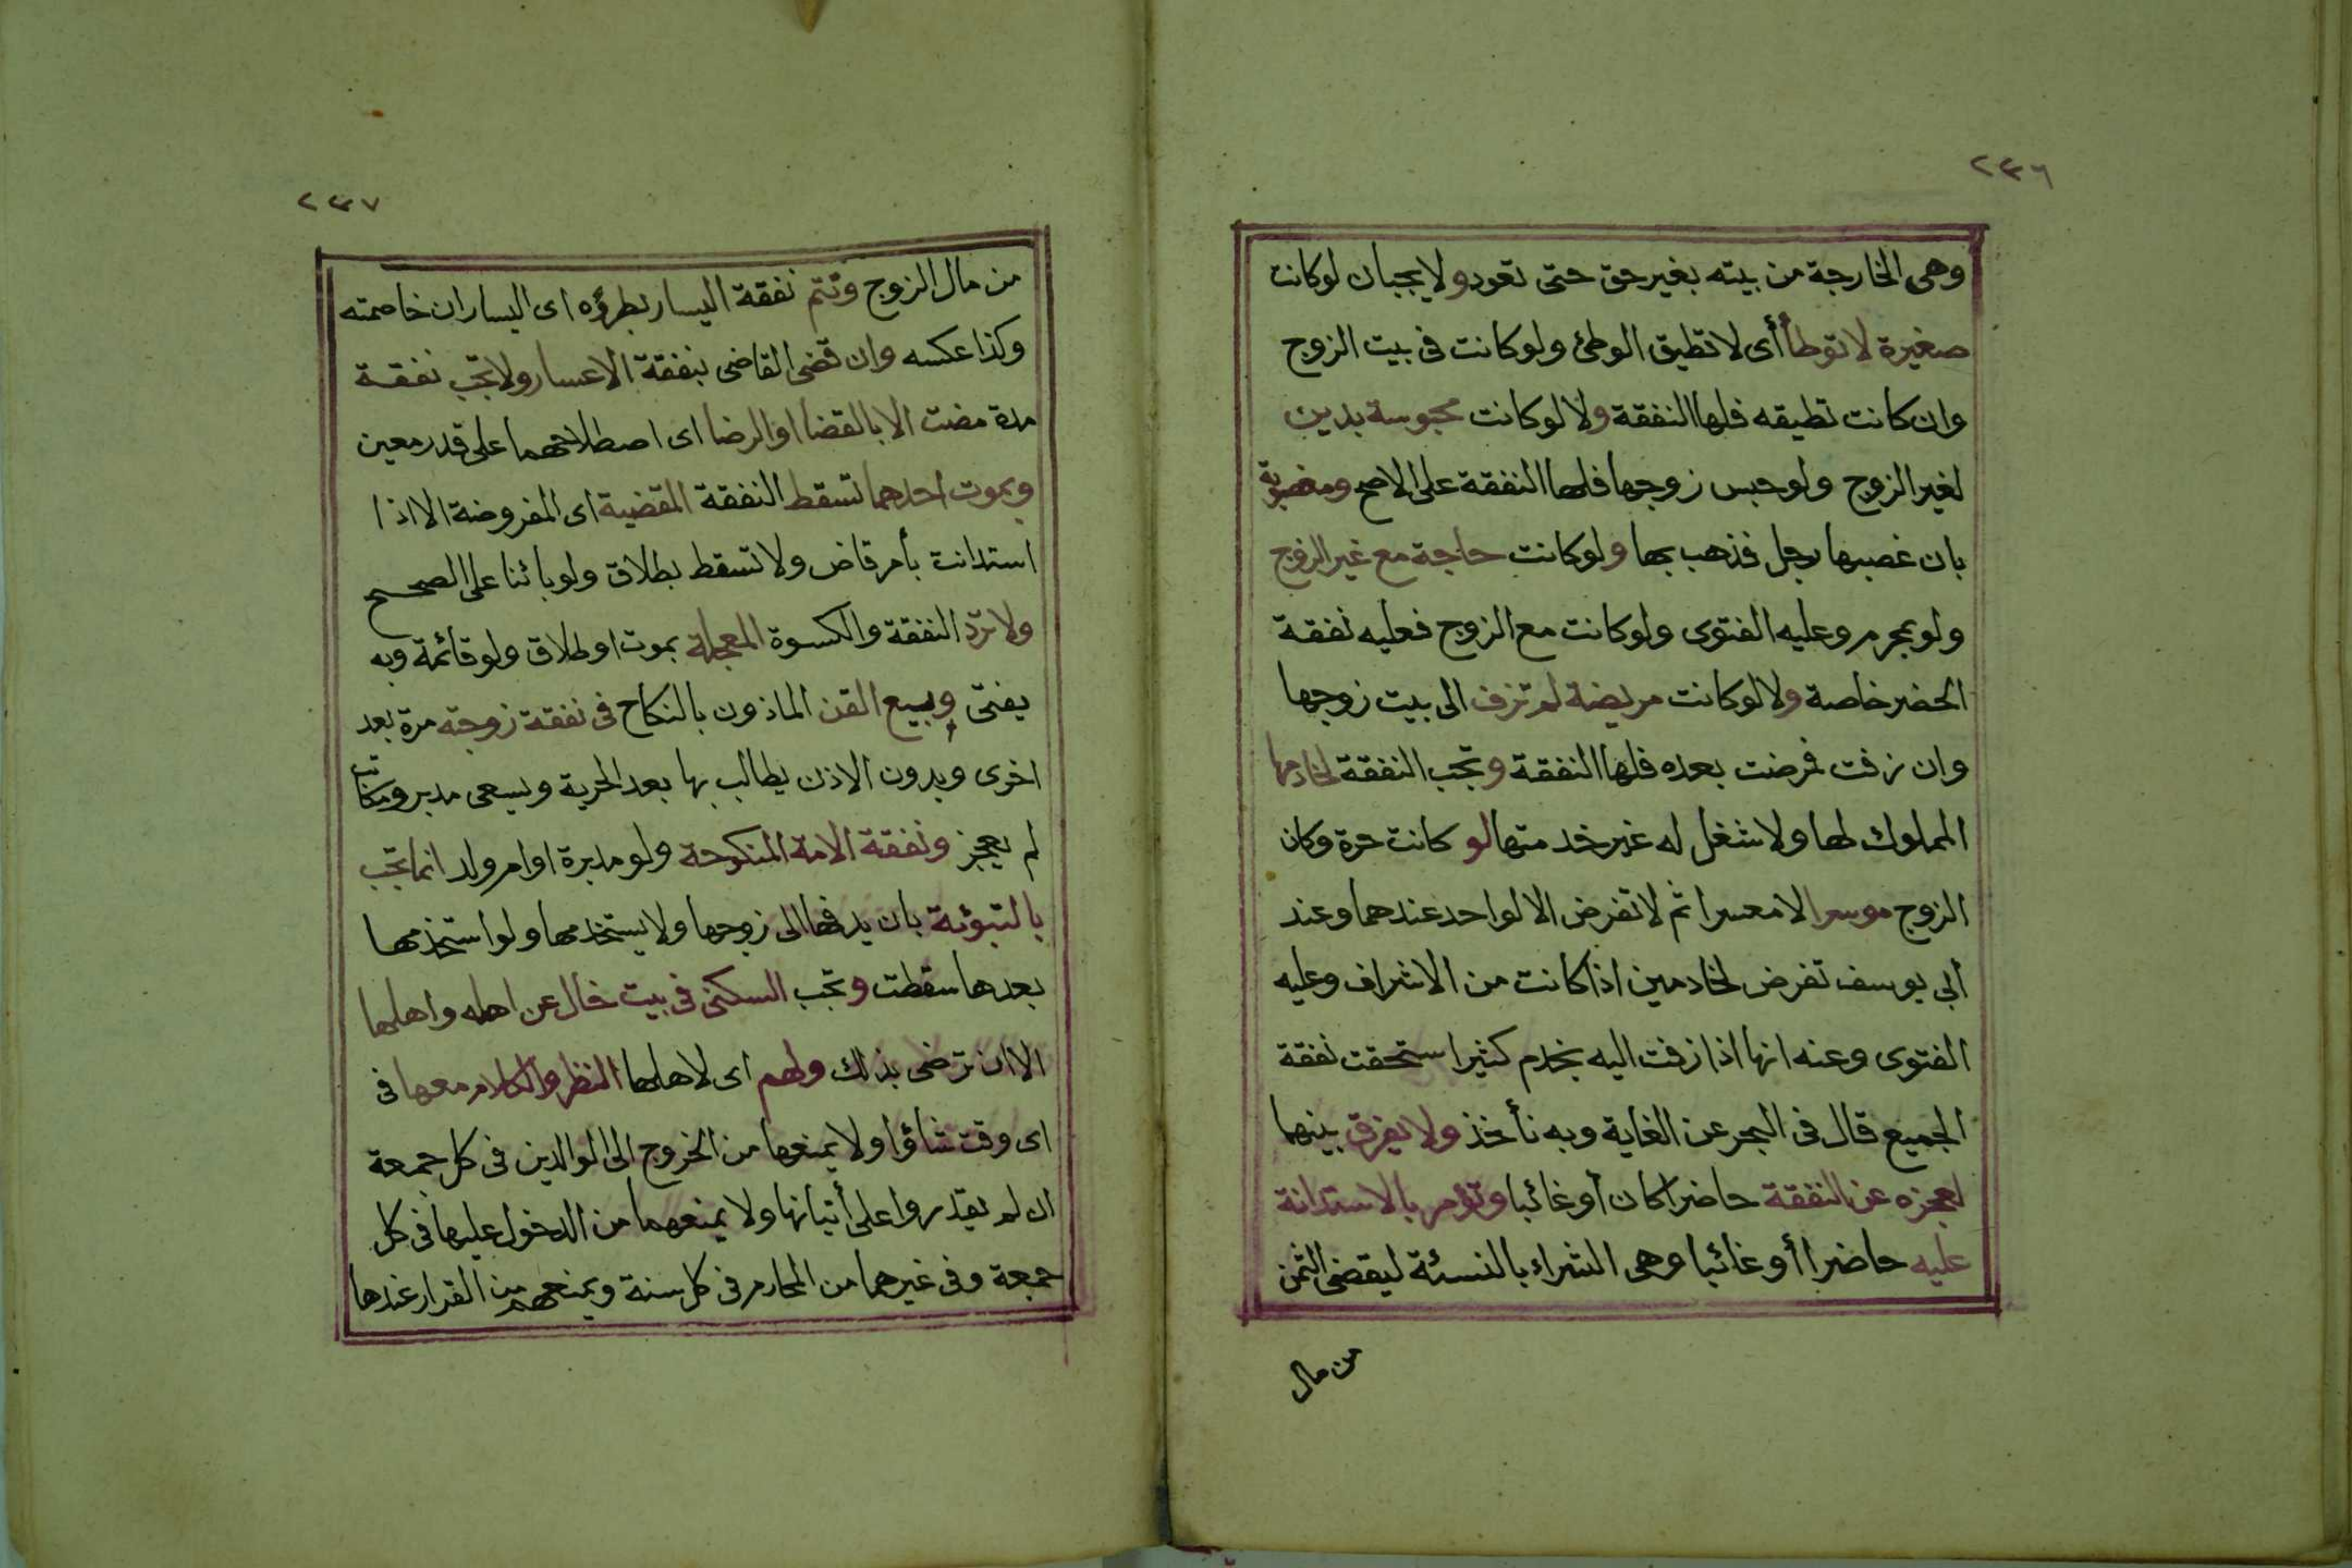 ٢٣٦
وهى الخارجة من بيته بغير حق حتى تعود ولا يجبان لوكانت
صغيرة لا توطأ أى لا تطيق الوطئ ولو كانت فى بيت الزوج
وان كانت تطيقه فلها النفقة ولا لو كانت محبوسة بدين
لغير الزوج ولو حبس زوجها فلها النفقة على الاصح ومغصوبة
بان غصبها رجل فذهب بها ولو كانت حاجة مع غير الزوج
ولو بمحرم وعليه الفتوى ولو كانت مع الزوج فعليه نفقة
الحضر خاصة ولا لو كانت مريضة لم تزف الى بيت زوجها
وان زفت فمرضت بعده فلها النفقة وتجب النفقة لخادمها
المملوك لها ولا شغل له غير خدمتها لو كانت حرة وكان
الزوج موسرا لا معسرا ثم لا تفرض الا لواحد عندهما وعند
أبي يوسف تفرض لخادمين اذا كانت من الاشراف وعليه
الفتوى وعنه انها اذا زفت اليه بخدم كثير استحقت نفقة
الجميع قال فى البحر عن الغاية وبه نأخذ ولا يفرق بينهما
لعجزه عن النفقة حاضرا كان أو غائبا وتؤمر بالاستدانة
عليه حاضرا أو غائبا وهى الشراء بالنسئة ليقضى الثمن
من مال
٢٣٧
من مال الزوج وتتم نفقة اليسار بطرؤه اى اليسار ان خاصمته
وكذا عكسه وان قضى القاضى بنفقة الاعسار ولا تجب نفقة
مدة مضت الا بالقضا او الرضا اى اصطلاحهما على قدر معين
وبموت احدهما تسقط النفقة المقضية اى المفروضة الا اذا
استدانت بأمر قاض ولا تسقط بطلاق ولو بائنا على الصحيح
ولا ترد النفقة والكسوة المعجلة بموت او طلاق ولو قائمة وبه
يفتى وبيع القن الماذون بالنكاح فى نفقة زوجته مرة بعد
اخرى وبدون الاذن يطالب بها بعد الحرية ويسعى مدبر ومكاتب
لم يعجز ونفقة الامة المنكوحة ولو مدبرة او ام ولد انما تجب
بالتبوئة بان يدفعها الى زوجها ولا يستخدمها ولو استخدمها
بعدها سقطت وتجب السكنى فى بيت خال عن اهله واهلها
الا ان ترضى بذلك ولهم اى لاهلها النظر والكلام معها فى
اى وقت شاؤا ولا يمنعها من الخروج الى الوالدين فى كل جمعة
ان لم يقدروا على أتيانها ولا يمنعهما من الدخول عليها فى كل
جمعة وفى غيرهما من المحارم فى كل سنة ويمنعهم من القرار عندها